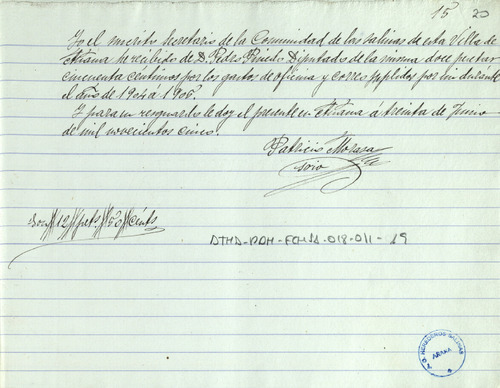 15 20
Yo el infrito Secretario de la Comunidad de las salinas de esta Villa de
Añana he recibido de D. Pedro Pinedo Diputado de la misma doce pesetas
cincuenta centimos por los gastos de oficina y correo supplidos por mi durante
el año de 1904 á 1905.
Y para su resguardo le doy el presente en Añana á treinta de Junio
de mil novecientos cinco.
Patricio
Srio
Son//12//pets//50//cents
ATHA-DAH-FCHSA-018-011-19
SALINAS
AÑANA